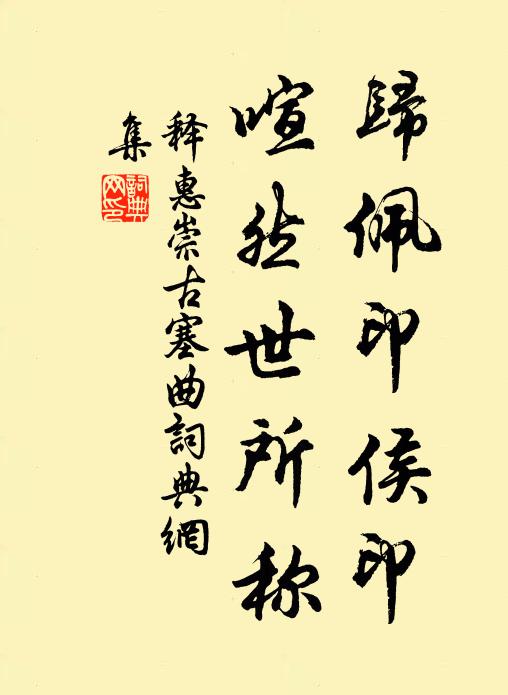 歸佩印侯印
喧然世所称
释惠崇古塞曲詞典網
集
詞典网印